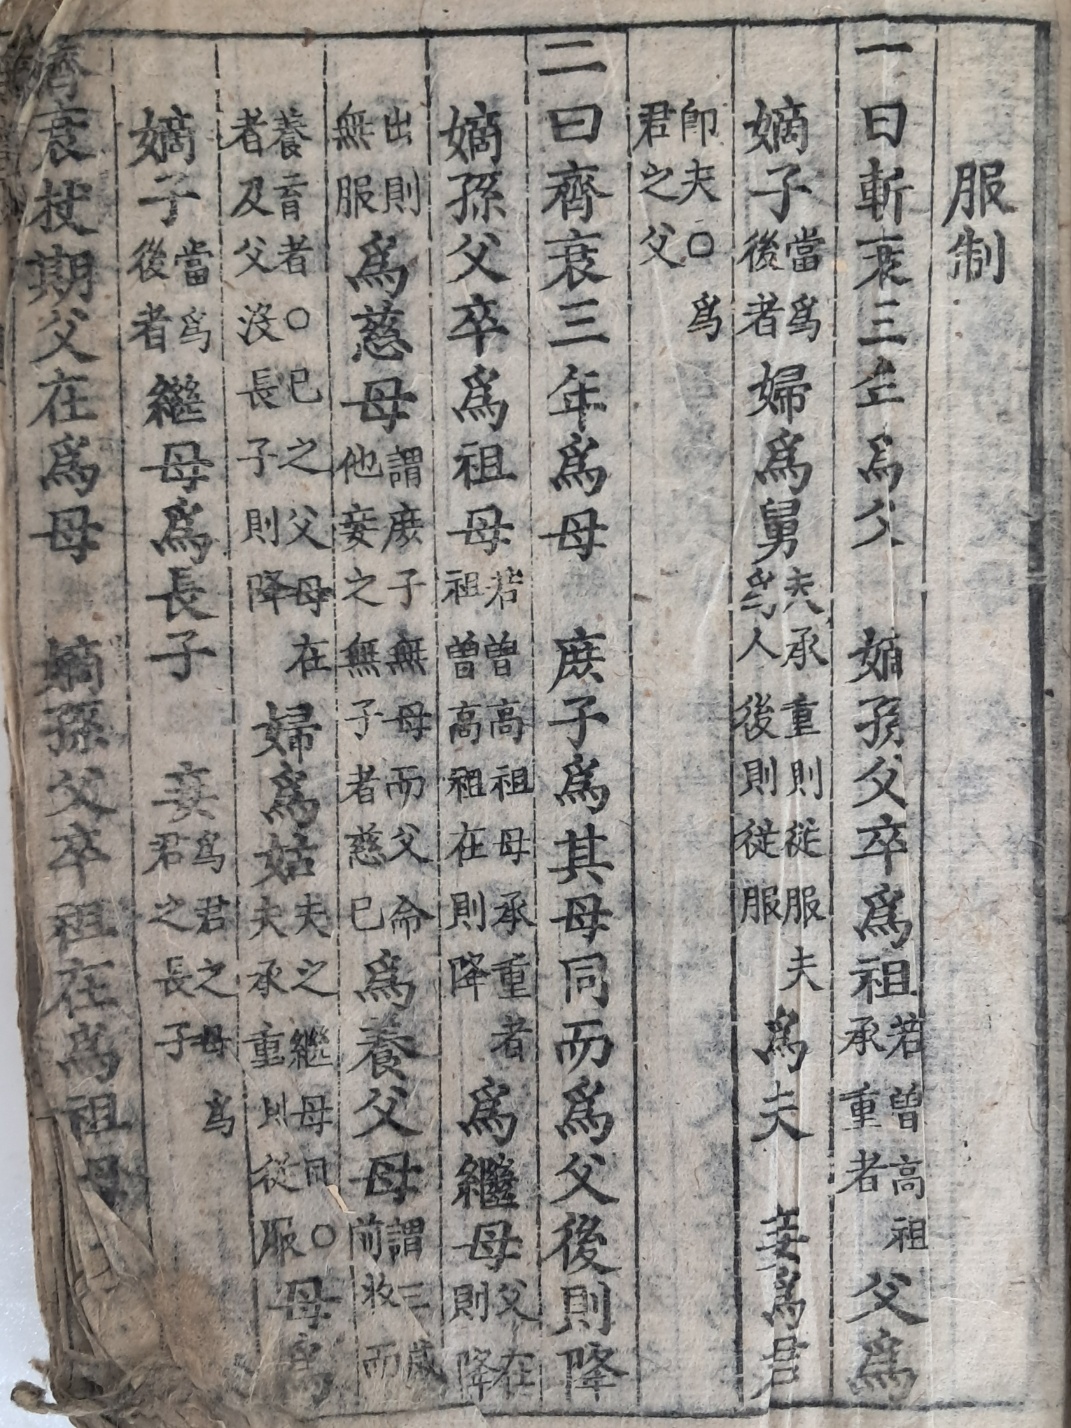 服制
一曰斬衰三年爲父　嫡孫父卒爲祖若曾高祖承重者父爲
嫡子當爲後者婦爲舅夫承重則從服夫爲人後則從服爲夫　妾爲君
卽夫○爲君之父
二曰齊衰三年爲母　庶子爲其母同而爲父後則降
嫡孫父卒爲祖母若曾高祖母承重者祖曾高祖在則降爲繼母父在則降
出則無服爲慈母謂庶子無母而父命他妾之無子者慈己爲養父母謂三歲前收而
養育者○己之父母在者及父沒長子則降婦爲姑夫之繼母同○夫承重則從服母爲
嫡子當爲後者繼母爲長子　妾爲君之母爲君之長子
齊衰杖期父在爲母　嫡孫父卒祖在爲祖母